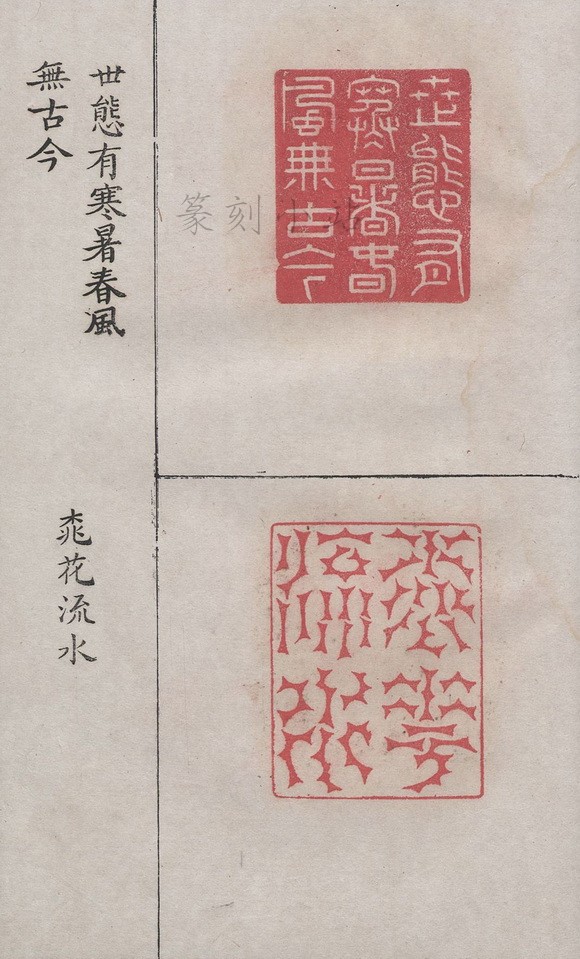 世態有
寒暑春
風無古今
世態有寒暑春風
無古今
篆刻小站
桃花
流水
桃花流水